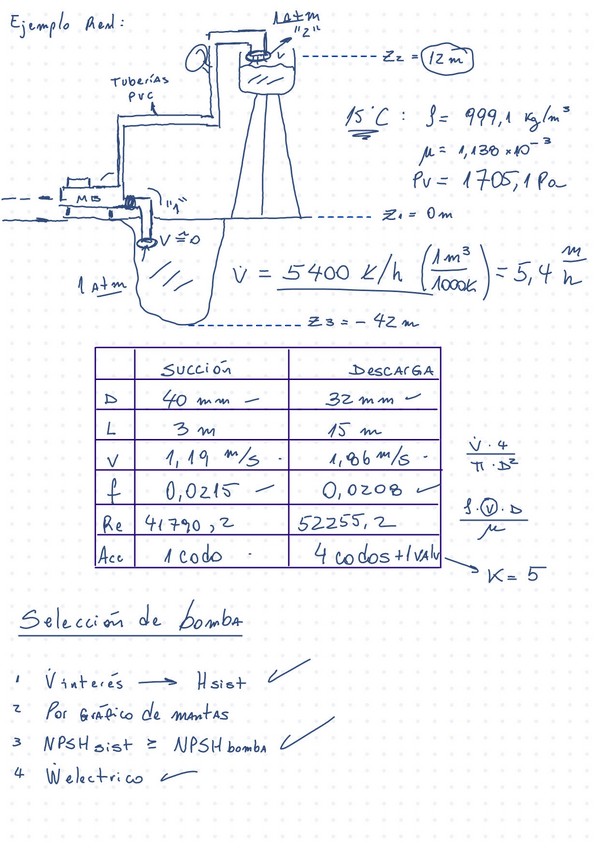 Ejemplo Real:
1 Atm
"2"
V
Z2 = 12 m
Tuberías
PVC
15°C : ρ = 999,1 kg/m³
μ = 1,138 x10⁻³
Pv = 1705,1 Pa
MB
"1"
Z1 = 0 m
V ≅ 0
1 Atm
V̇ = 5400 l/h (1 m³ / 1000 l) = 5,4 m/h
Z3 = - 42 m
Succión Descarga
D 40 mm 32 mm
L 3 m 15 m
V 1,19 m/s 1,86 m/s
f 0,0215 0,0208
Re 41790,2 52255,2
Acc 1 codo 4 codos + 1 valv
V̇ · 4 / π · D²
ρ · V · D / μ
K = 5
Selección de bomba
1 V̇ interés → H sist ✓
2 Por gráfico de mantas
3 NPSH sist ≥ NPSH bomba ✓
4 Ẇ electrico ✓